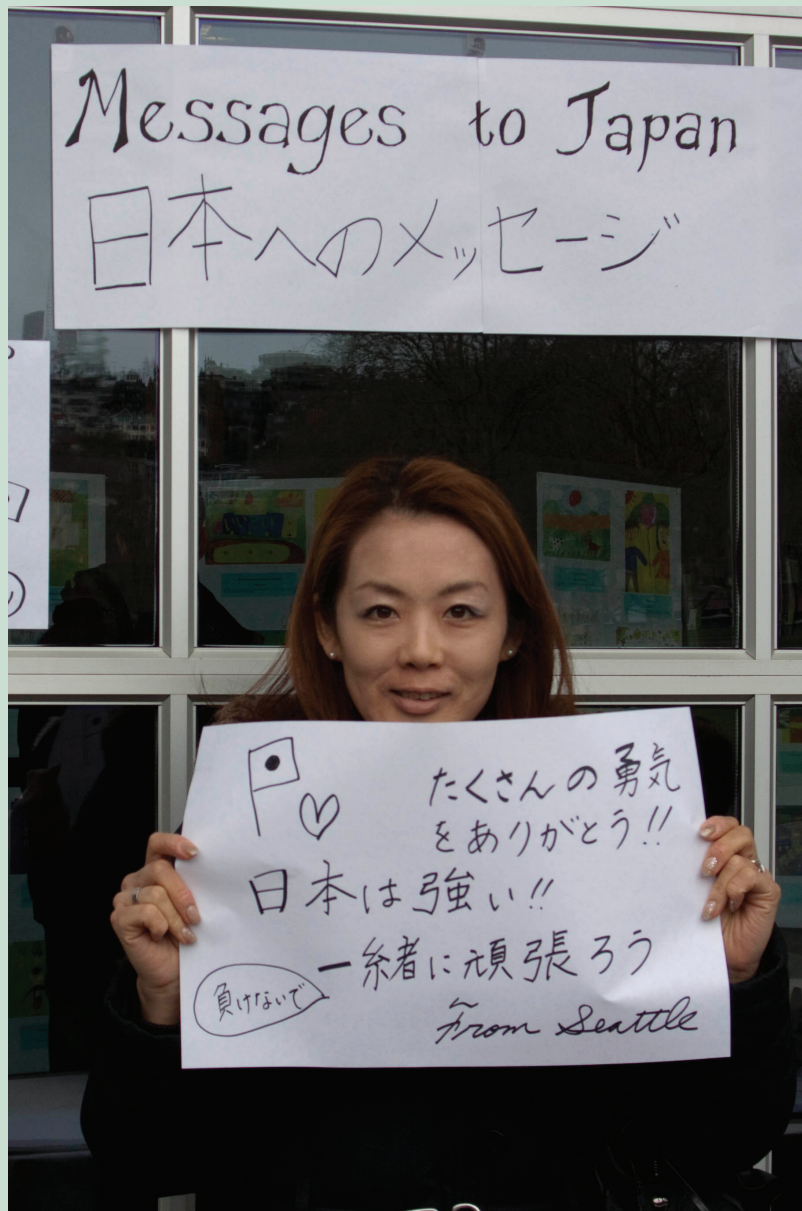 Messages to Japan
日本へのメッセージ
たくさんの勇気
をありがとう!!
日本は強い!!
一緒に頑張ろう
負けないで
From Seattle